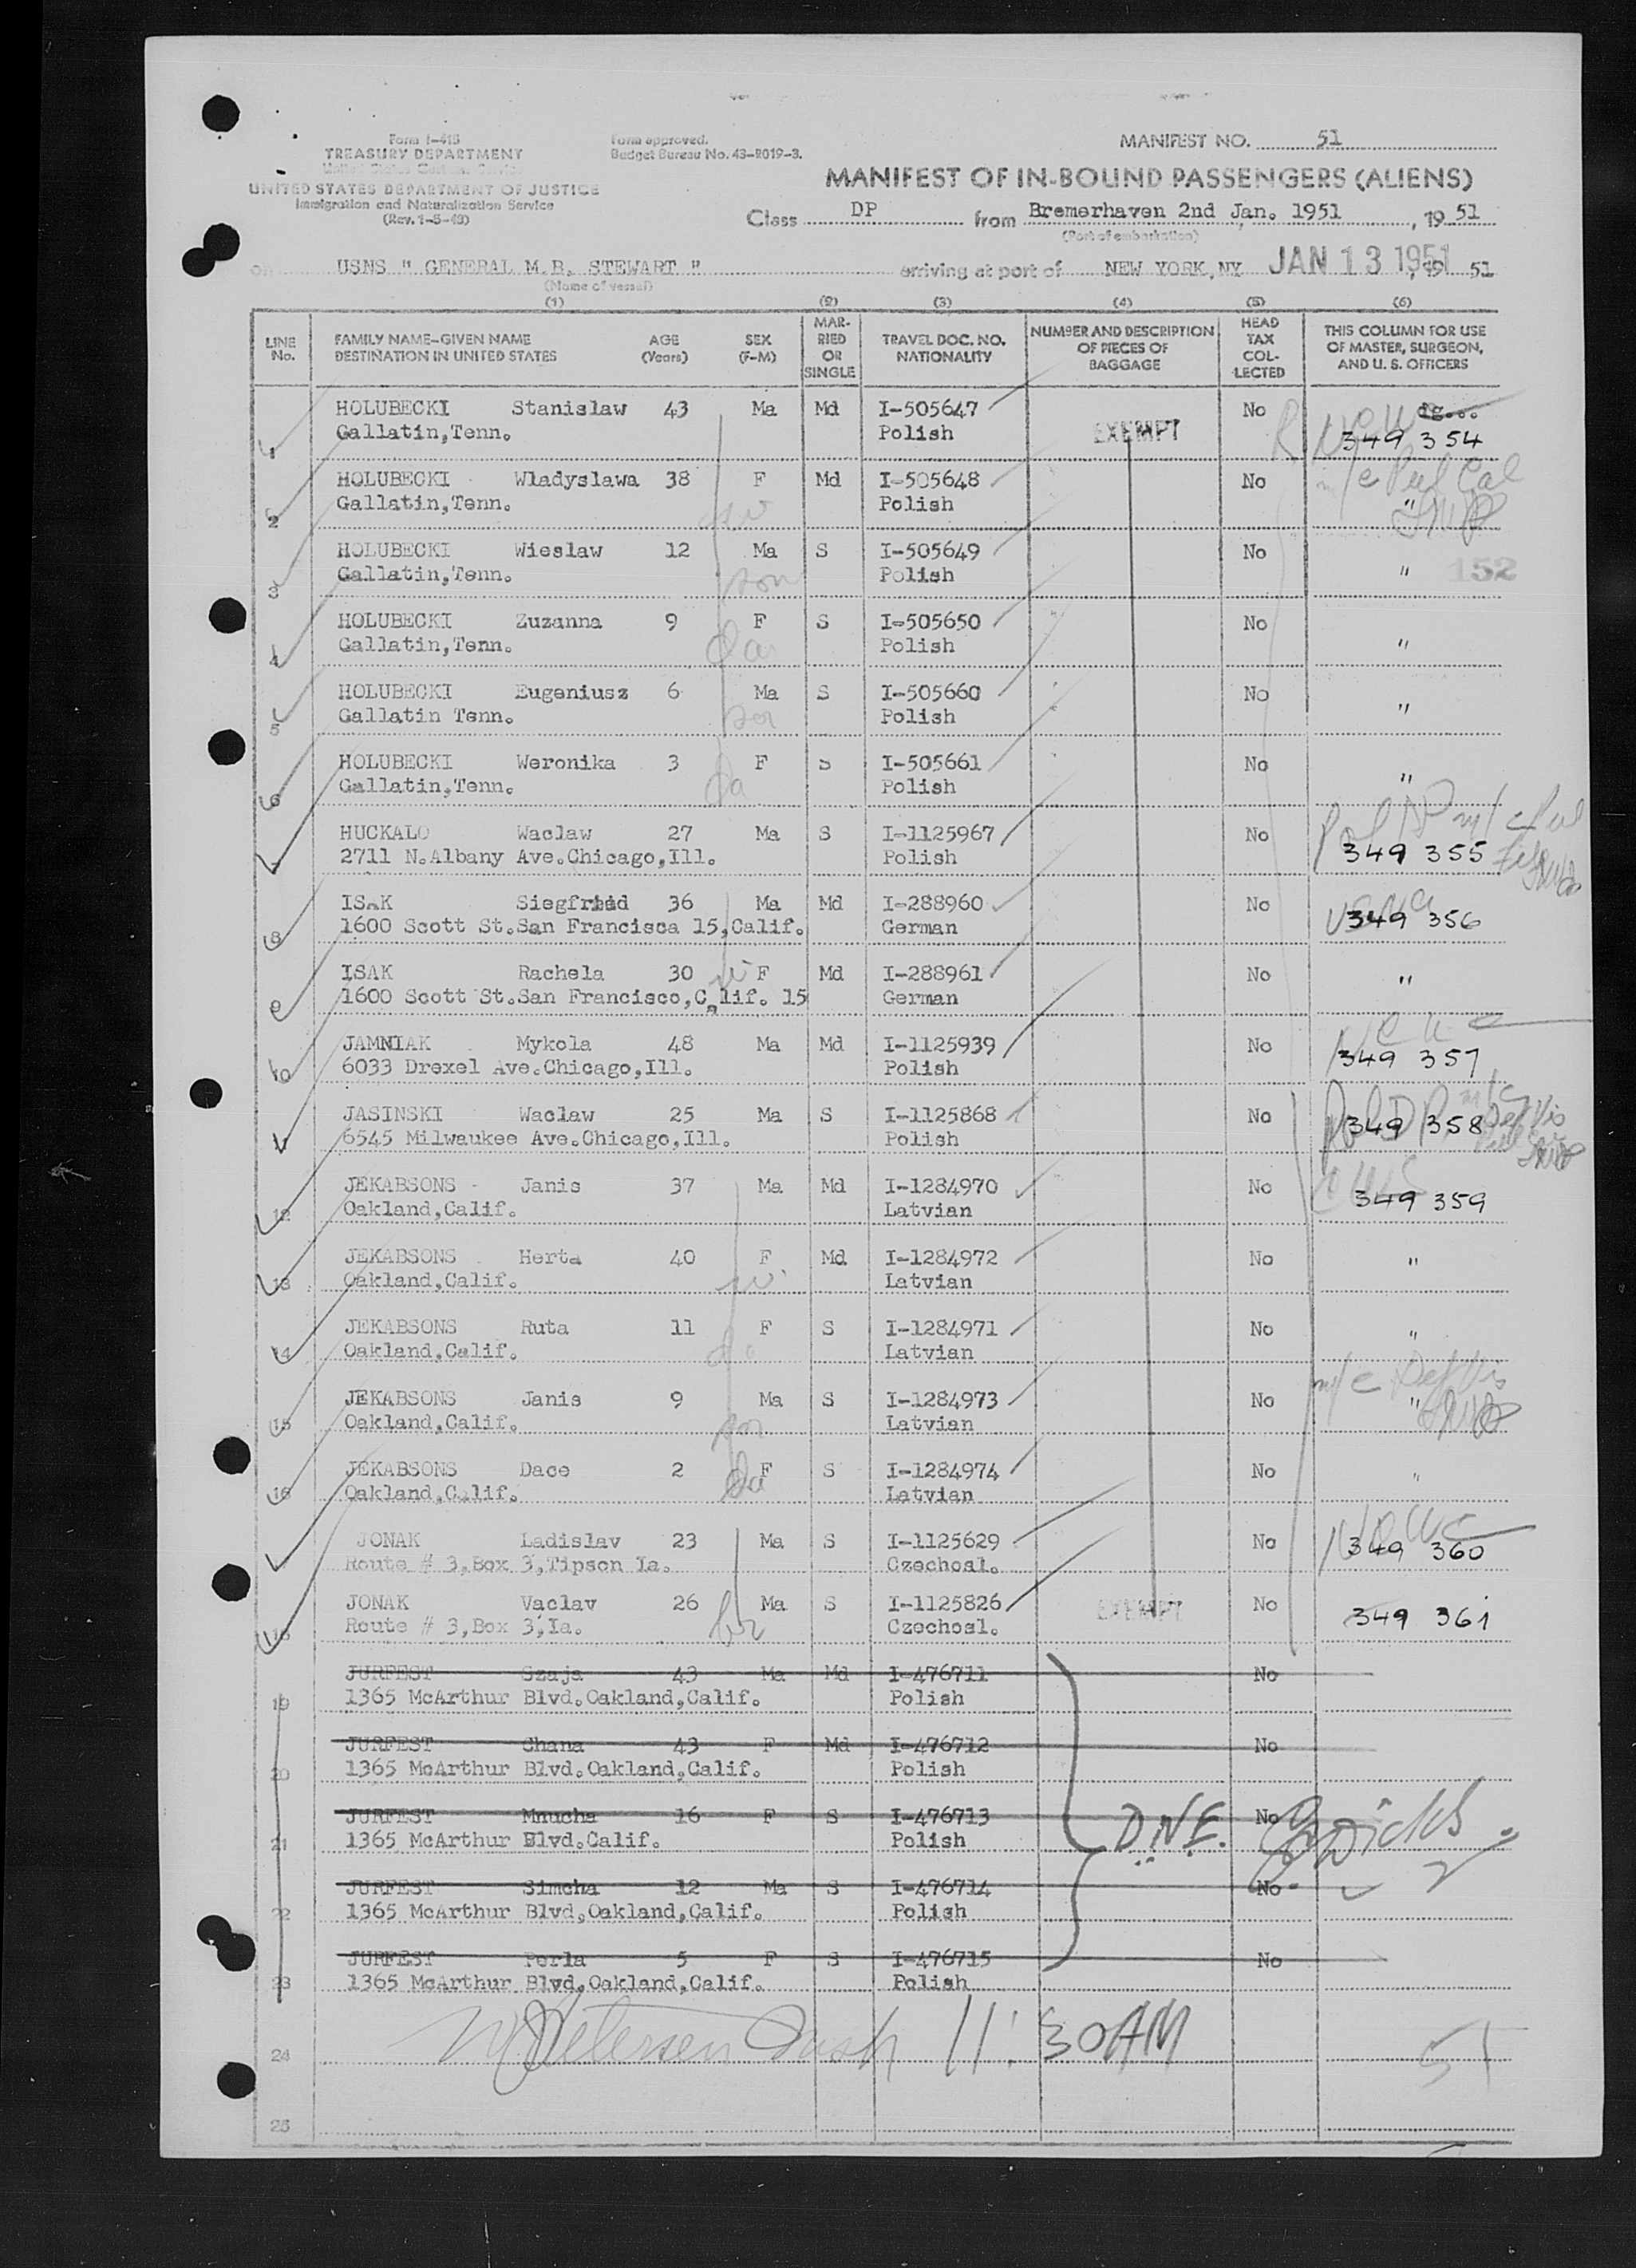 Form I-415
TREASURY DEPARTMENT
United States Customs Service
UNITED STATES DEPARTMENT OF JUSTICE
Immigration and Naturalization Service
(Rev. 1-5-49)
Form approved.
Budget Bureau No. 43-R019-3.
MANIFEST NO. 51
MANIFEST OF IN-BOUND PASSENGERS (ALIENS)
Class DP from Bremerhaven 2nd Jan. 1951, 19 51
(Port of embarkation)
on USNS " GENERAL M.B. STEWART " arriving at port of NEW YORK,NY JAN 13 1951, 19 51
(Name of vessel)
(1) (2) (3) (4) (5) (6)
LINE No. FAMILY NAME-GIVEN NAME DESTINATION IN UNITED STATES AGE (Years) SEX (F-M) MARRIED OR SINGLE TRAVEL DOC. NO. NATIONALITY NUMBER AND DESCRIPTION OF PIECES OF BAGGAGE HEAD TAX COL-LECTED THIS COLUMN FOR USE OF MASTER, SURGEON, AND U. S. OFFICERS
HOLUBECKI Stanislaw 43 Ma Md I-505647 No
1 Gallatin,Tenn. Polish EXEMPT 349 354
HOLUBECKI Wladyslawa 38 F Md I-505648 No
2 Gallatin,Tenn. w Polish "
HOLUBECKI Wieslaw 12 Ma S I-505649 No
3 Gallatin,Tenn. son Polish " 152
HOLUBECKI Zuzanna 9 F S I-505650 No
4 Gallatin,Tenn. da Polish "
HOLUBECKI Eugeniusz 6 Ma S I-505660 No
5 Gallatin Tenn. son Polish "
HOLUBECKI Weronika 3 F S I-505661 No
6 Gallatin,Tenn. da Polish "
HUCKALO Waclaw 27 Ma S I-1125967 No
7 2711 N.Albany Ave.Chicago,Ill. Polish 349 355
ISAK Siegfried 36 Ma Md I-288960 No
8 1600 Scott St.San Francisca 15,Calif. German 349 356
ISAK Rachela 30 w F Md I-288961 No
9 1600 Scott St.San Francisco,Calif. 15 German "
JAMNIAK Mykola 48 Ma Md I-1125939 No
10 6033 Drexel Ave.Chicago,Ill. Polish 349 357
JASINSKI Waclaw 25 Ma S I-1125868 No
11 6545 Milwaukee Ave.Chicago,Ill. Polish 349 358
JEKABSONS Janis 37 Ma Md I-1284970 No
12 Oakland,Calif. Latvian 349 359
JEKABSONS Herta 40 F Md I-1284972 No
13 Oakland,Calif. w Latvian "
JEKABSONS Ruta 11 F S I-1284971 No
14 Oakland,Calif. da Latvian "
JEKABSONS Janis 9 Ma S I-1284973 No
15 Oakland,Calif. son Latvian "
JEKABSONS Dace 2 F S I-1284974 No
16 Oakland,Calif. da Latvian "
JONAK Ladislav 23 Ma S I-1125629 No
Route # 3,Box 3,Tipson Ia. Czechosl. 349 360
JONAK Vaclav 26 Ma S I-1125826 EXEMPT No
18 Route # 3,Box 3,Ia. br Czechosl. 349 361
JURFEST Szaja 43 Ma Md I-476711 No
19 1365 McArthur Blvd.Oakland,Calif. Polish
JURFEST Chana 43 F Md I-476712 No
20 1365 McArthur Blvd.Oakland,Calif. Polish
JURFEST Mnucha 16 F S I-476713 No
21 1365 McArthur Blvd.Calif. Polish D.N.E.
JURFEST Simcha 12 Ma S I-476714 No
22 1365 McArthur Blvd,Oakland,Calif. Polish
JURFEST Perla 5 F S I-476715 No
23 1365 McArthur Blvd,Oakland,Calif. Polish
24 Petersen 11:30AM 51
25